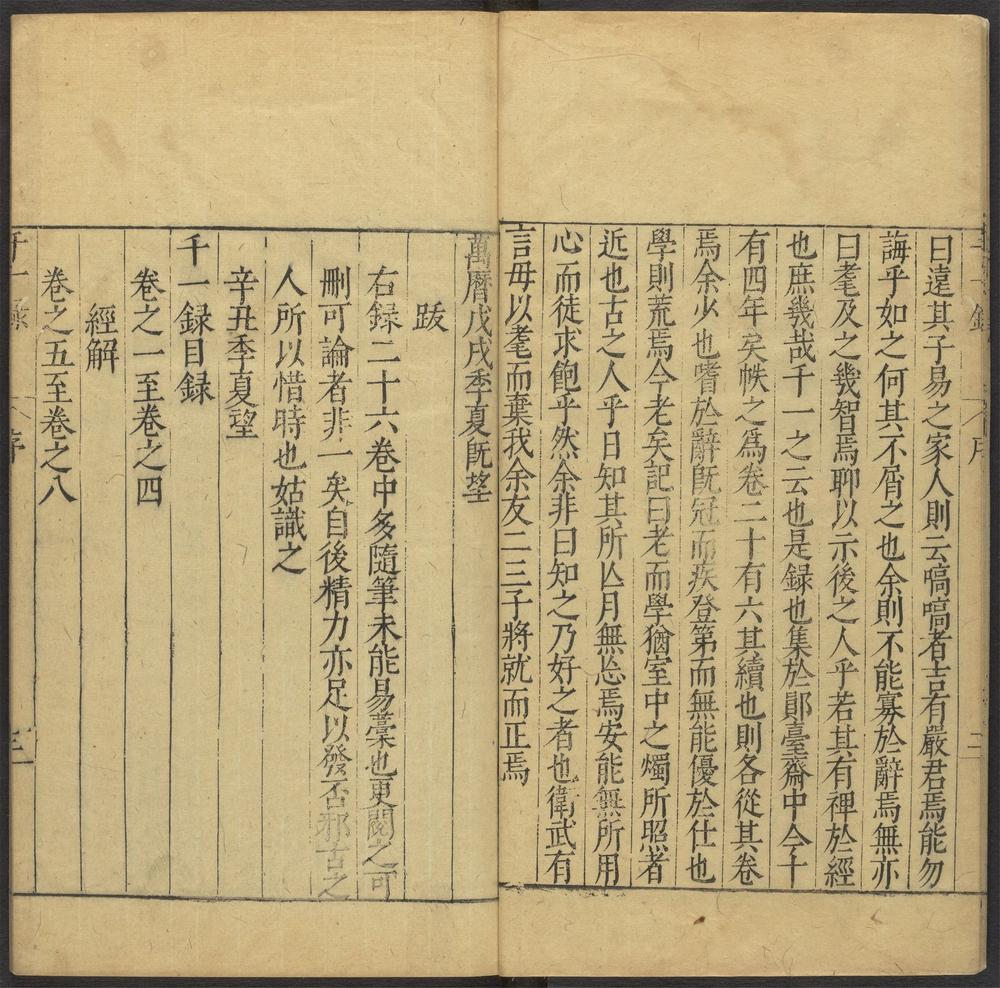 曰遠其子易之家人則云嗃嗃者吉有嚴君焉能勿
誨乎如之何其不屑之也余則不能寡於辭焉無亦
曰耄及之幾智焉聊以示後之人乎若其有裨於經
也庶幾哉千一之云也是録也集於鄖臺齋中今十
有四年矣帙之爲卷二十有六其續也則各從其卷
焉余少也嗜於辭旣冠而疾登第而無能優於仕也
學則荒焉今老矣記曰老而學猶室中之燭所照者
近也古之人乎日知其所亾月無忘焉安能無所用
心而徒求飽乎然余非曰知之乃好之者也衛武有
言毋以耄而棄我余友二三子將就而正焉
萬曆戊戌季夏旣望
跋
右録二十六卷中多隨筆未能易藳也更閱之可
刪可論者非一矣自後精力亦足以發否邪古之
人所以惜時也姑識之
辛丑季夏望
千一録目録
卷之一至卷之四
經解
卷之五至卷之八
千一録
序
三